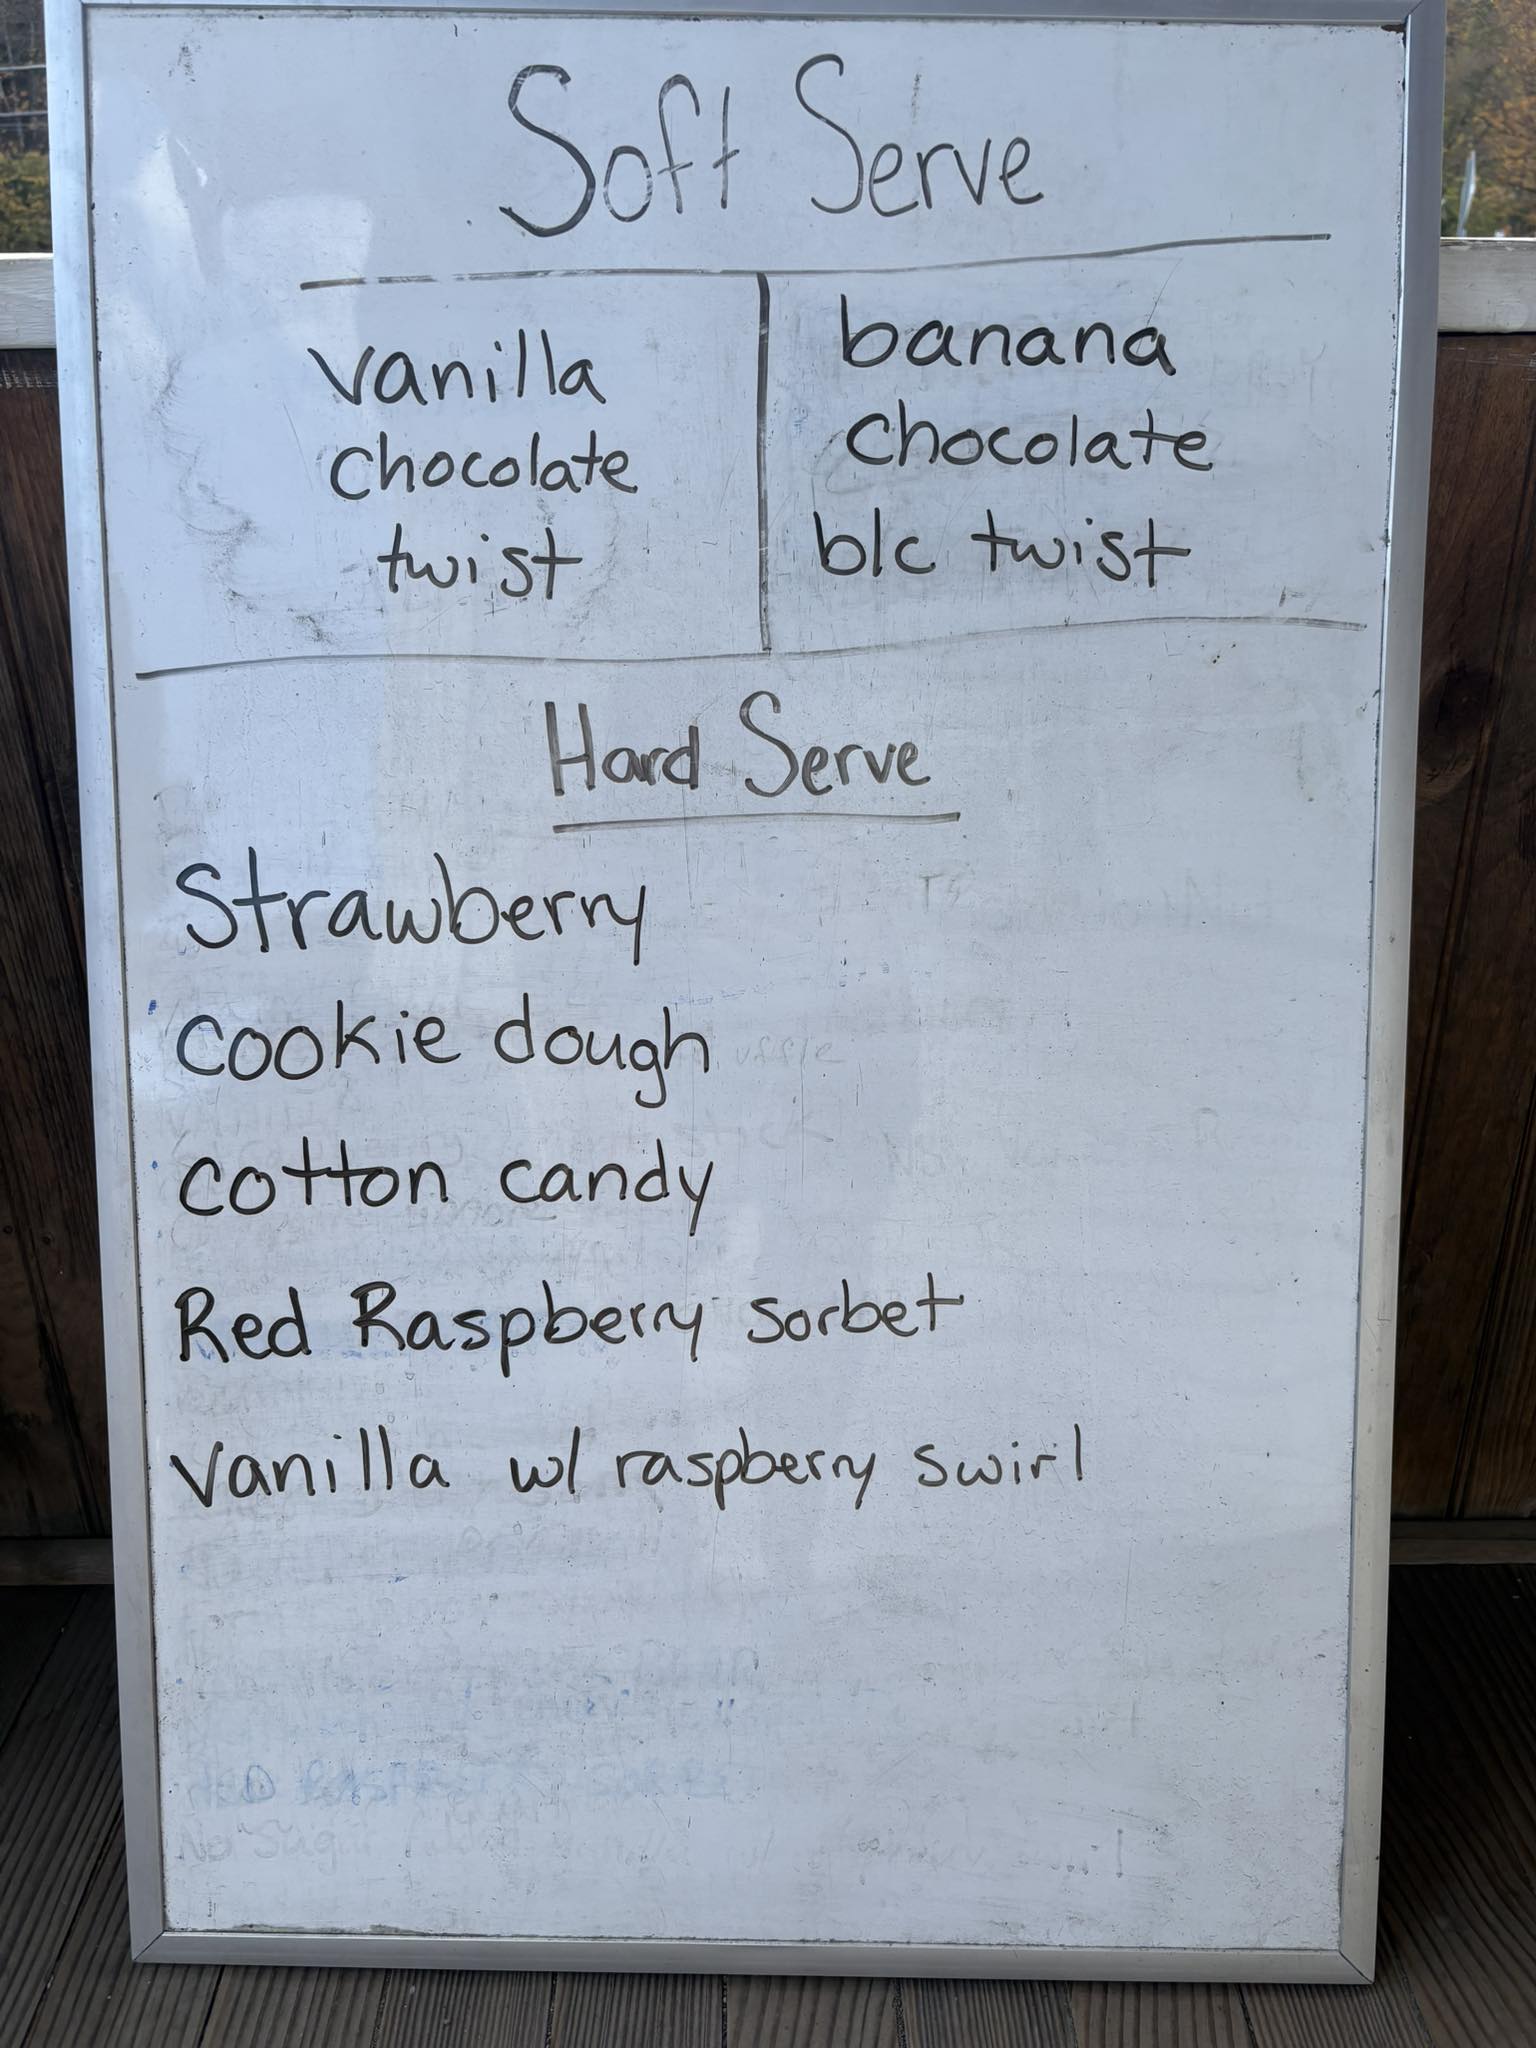 Soft Serve
vanilla
chocolate
twist
banana
chocolate
b/c twist
Hard Serve
Strawberry
cookie dough
cotton candy
Red Raspberry sorbet
vanilla w/ raspberry swirl
No Sugar